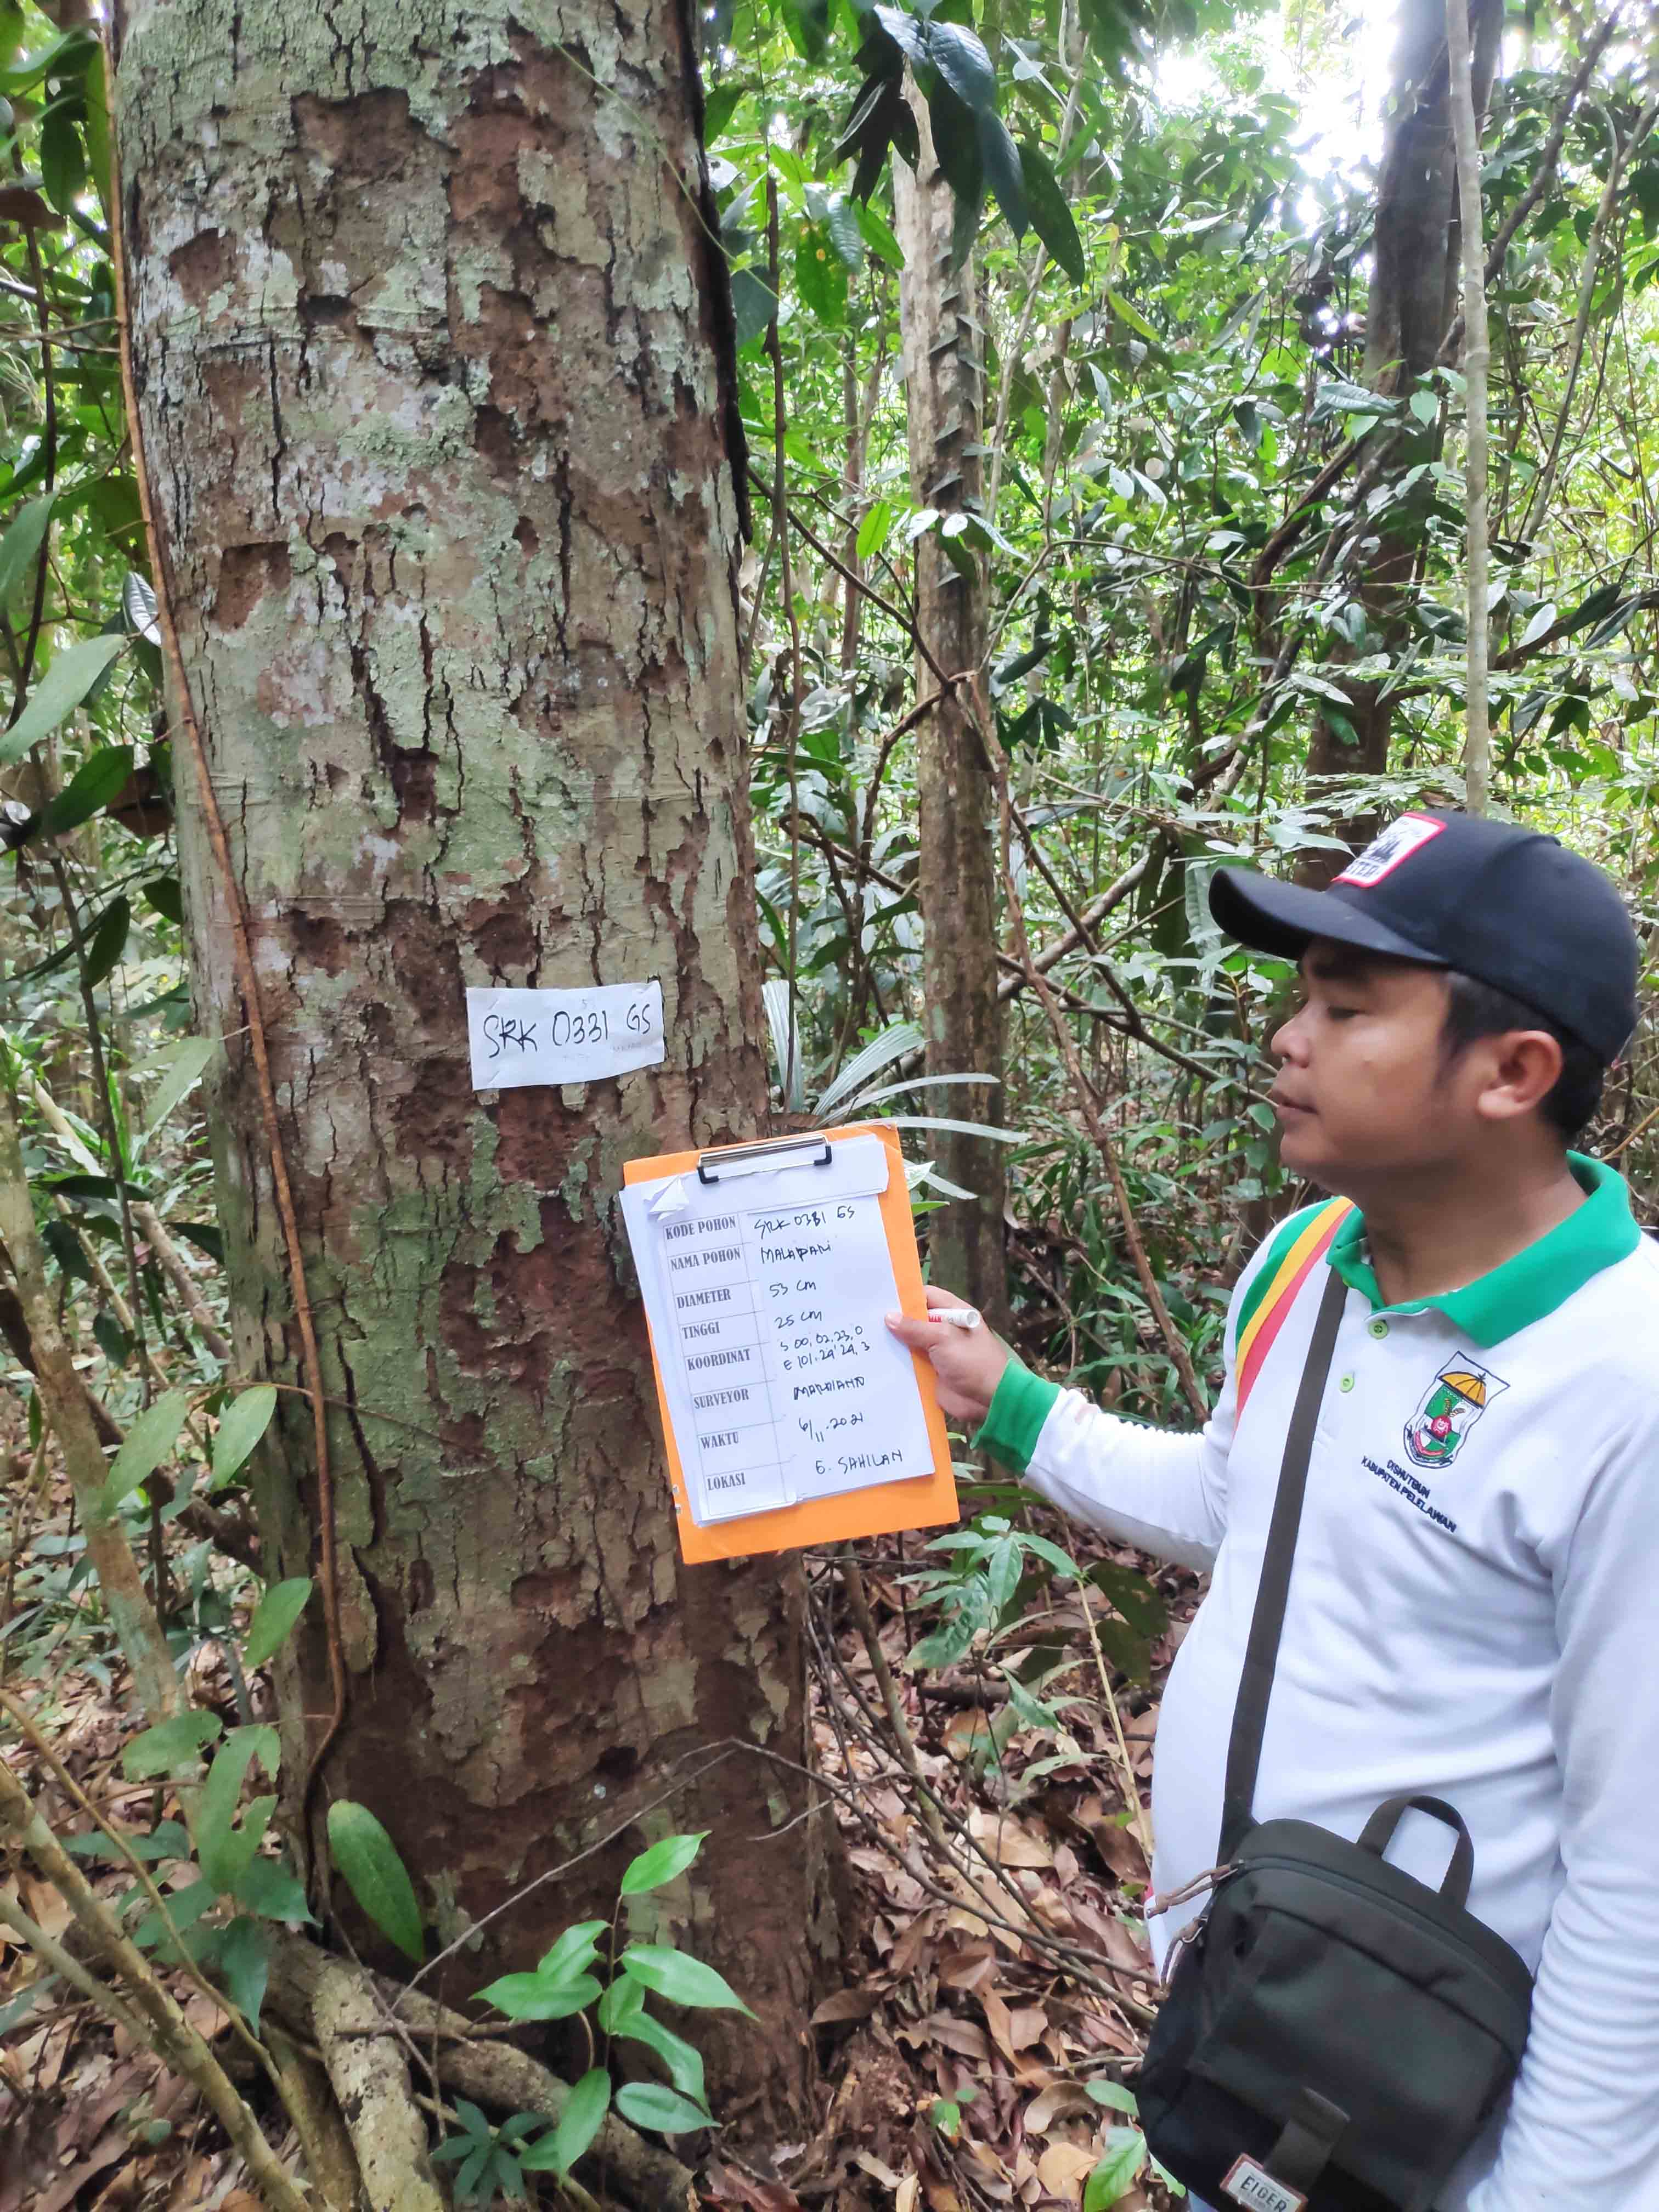 SRK 0331 GS
KODE POHON SRK 0331 GS
NAMA POHON MALAPARI
DIAMETER 53 cm
TINGGI 25 cm
KOORDINAT S 00, 02, 23, 0
E 101. 24' 24, 3
SURVEYOR MARDIANTO
WAKTU 6/11.2021
LOKASI G. SAHILAN
DISHUTBUN
KABUPATEN PELELAWAN
EIGER